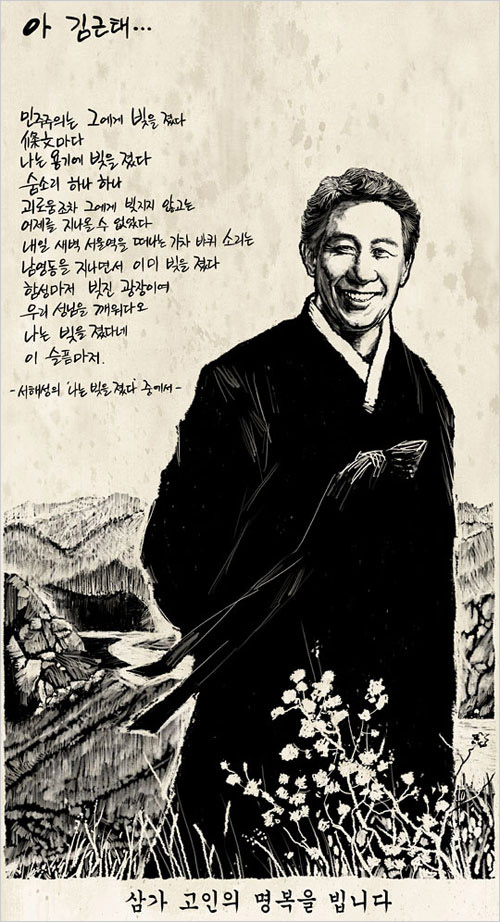 아 김근태...
민주주의는 그에게 빚을 졌다
條文마다
나는 용기에 빚을 졌다
숨소리 하나 하나
괴로움조차 그에게 빚지지 않고는
어제를 지나올 수 없었다
내일 새벽 서울역을 떠나는 기차 바퀴 소리는
남영동을 지나면서 이미 빚을 졌다
함성마저 빚진 광장이여
우리 성님을 깨워다오
나는 빚을 졌다네
이 슬픔마저.
-서해성의 '나는 빚을 졌다' 중에서-
삼가 고인의 명복을 빕니다